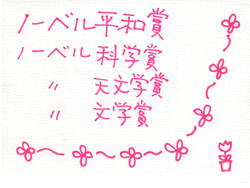 ノーベル平和賞
ノーベル科学賞
〃 天文学賞
〃 文学賞